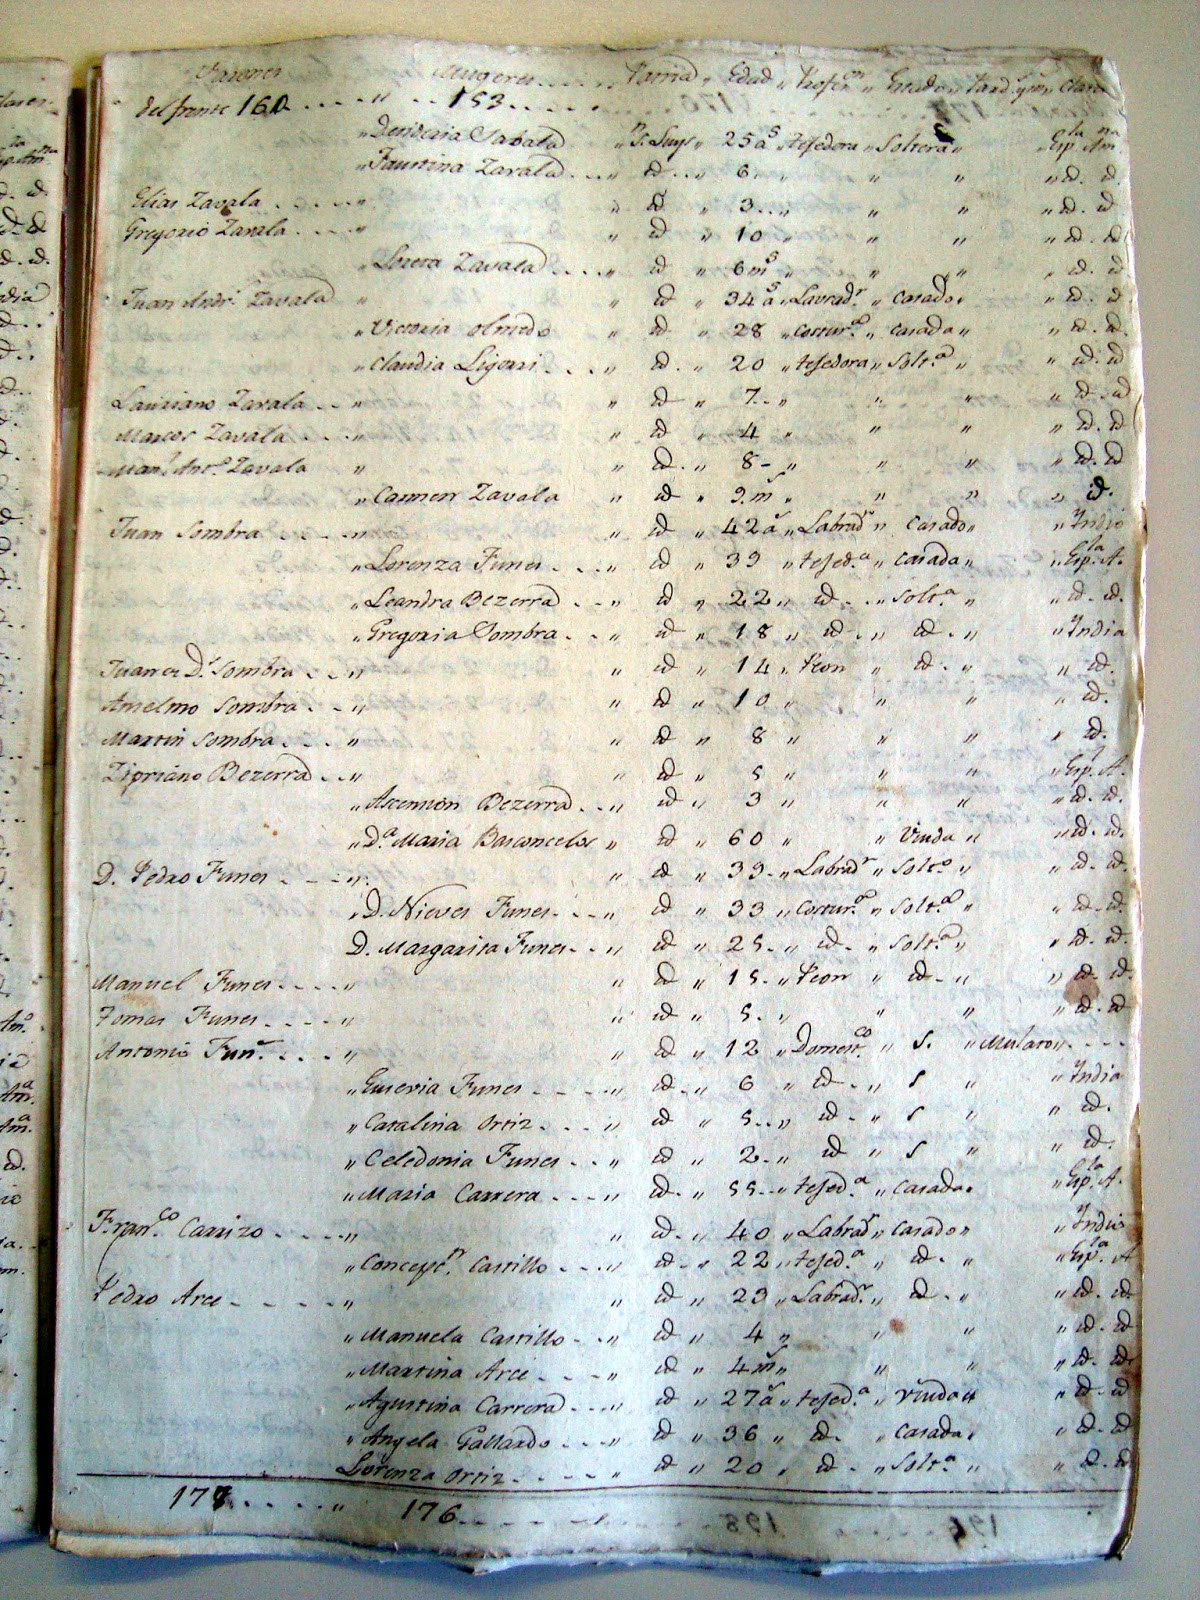 Varones Mugeres Patria „ Edad „ Profes.on „ Estado „ Clase
del frente 160 . . . . . „ . . 153 . . . . .
„ Desideria Sabala „ S. Luys „ 25 a.s „ tejedora „ Soltera „ „ Esp.la Am.na
„ Faustina Zavala . . . „ id . . „ 6 . „ „ „ „ id. id.
Elias Zavala . . . . . „ „ id „ 3 . . „ „ „ „ id. id
Gregorio Zavala . . . . „ „ id „ 10 „ „ „ „ id. id
„ Lorera Zavala . . . . „ id „ 6 m.s „ „ „ „ id. id
Juan Andr.s Zavala „ „ id „ 34 a.s „ Lavrad.r „ Casado „ „ id. id
„ Victoria Olmedo „ id „ 28 „ costur.a „ casada „ „ id. id.
„ Claudia Ligorri . . . „ id. „ 20 „ tejedora „ Solt.a „ „ id. id
Lauriano Zavala . . „ „ id „ 7 . . „ „ „ „ id. id
Marcos Zavala . . . „ „ id „ 4 „ „ „ „ id. id
Man.l Ant.o Zavala „ „ id. „ 8 - „ „ „ „ id. id
„ Carmen Zavala „ id „ 9 m.s „ „ „ „ id.
Juan Sombra . . . . „ „ id „ 42 a.s „ Labrad.r „ Casado „ „ Indio
„ Lorenza Funes . . . „ id „ 39 „ tejed.a „ casada „ „ Esp.la A.
„ Leandra Bezerra . . „ id „ 22 „ id . . „ Solt.a „ „ id. id.
„ Gregoria Sombra . . „ id „ 18 „ id . „ id . „ „ India
Juan de D.s Sombra . . „ „ id „ 14 „ Peon „ id . „ „ id.
Anselmo Sombra . . „ „ id „ 10 „ „ „ „ id.
Martin Sombra . . . „ „ id „ 8 „ „ „ „ id.
Zipriano Bezerra . . „ „ id „ 5 „ „ „ „ Esp.l A.
„ Ascension Bezerra . . „ id „ 3 „ „ „ „ id. id.
„ D.a Maria Basconcelos „ id „ 60 „ „ Viuda „ „ id. id.
D. Pedro Funes . . . „ „ id „ 39 . „ Labrad.r „ Solt.o „ „ id. id.
„ D. Nieves Funes . . . „ id „ 33 „ Costur.a „ Solt.a „ „ id. id.
D. Margarita Funes . . „ id „ 25 . „ id . „ Solt.a „ „ id. id.
Manuel Funes . . . . „ „ id „ 15 . „ Peon „ id . „ „ id. id.
Tomas Funes . . . . „ „ id „ 5 . „ „ „ „ id. id
Antonio Fun.s . . . . „ „ id „ 12 „ Domest.co „ S. „ Mulato „ . . . .
„ Euseria Funes . . . . „ id . „ 6 „ id . „ S „ „ India
„ Catalina Ortiz . . . . „ id „ 5 . . „ id . „ S „ „ id.
„ Celedonia Funes . . „ id „ 2 . „ id „ S „ „ id.
„ Maria Carrera . . . . „ id. „ 55 . . „ tejed.a „ Casada . „ Esp.la A.
Fran.co Carrizo . . . . „ „ id . „ 40 „ Labrad.r „ Casado „ „ Indio
„ Concepc.n Castillo . . . „ id . „ 22 „ tejed.a „ id . „ „ Esp.la A
Pedro Arce . . . . . „ „ id „ 29 „ Labrad.r „ id . „ „ id. id.
„ Manuela Castillo . . „ id „ 4 „ „ „ „ id. id
„ Martina Arce . . . . „ id „ 4 m.s „ „ „ „ id. id.
„ Agustina Carrera . . . „ id „ 27 a.s „ tejed.a „ viuda „ „ id. id
„ Angela Gallardo . . . „ id „ 36 „ id . „ casada . „ id. id
Lorenza Ortiz . . . . . „ id „ 20 „ id . „ Solt.a „ „ id. id
177 . . . . . „ 176 . . . . .